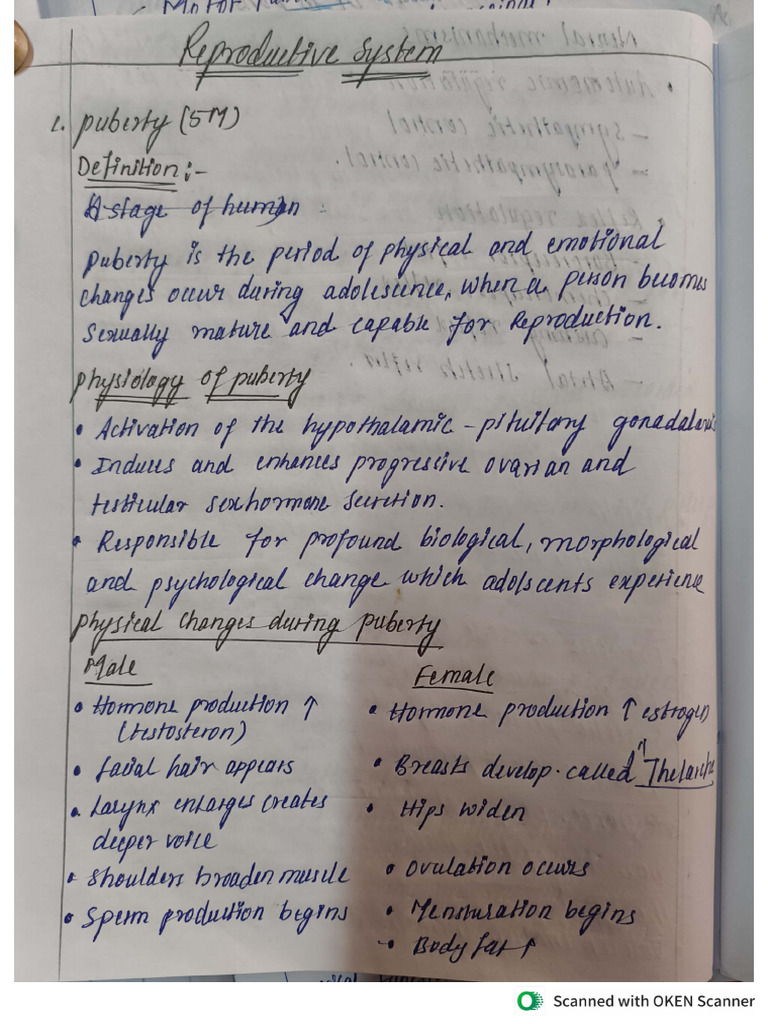 Reproductive System
1. puberty (5M)
Definition:-
A stage of human
puberty is the period of physical and emotional
changes occur during adolescence, when a person becomes
sexually mature and capable for Reproduction.
physiology of puberty
• Activation of the hypothalamic - pituitary gonadalaxis
• Induces and enhances progressive ovarian and
testicular sexhormone secretion.
• Responsible for profound biological, morphological
and psychological change which adolscents experience
physical changes during puberty
Male
• Hormone production ↑
(testosteron)
• facial hair appears
• Larynx enlarges creates
deeper voice
• Shoulders broaden muscle
• Sperm production begins
Female
• Hormone production ↑ estrogen
• Breasts develop. called "Thelarche
• Hips widen
• Ovulation occurs
• Mensturation begins
• Body fat ↑
Scanned with OKEN Scanner